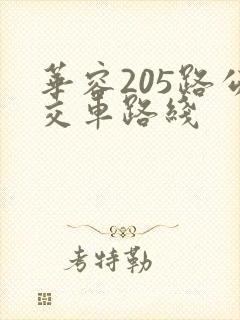 華容205路公
交車路綫
考特勒